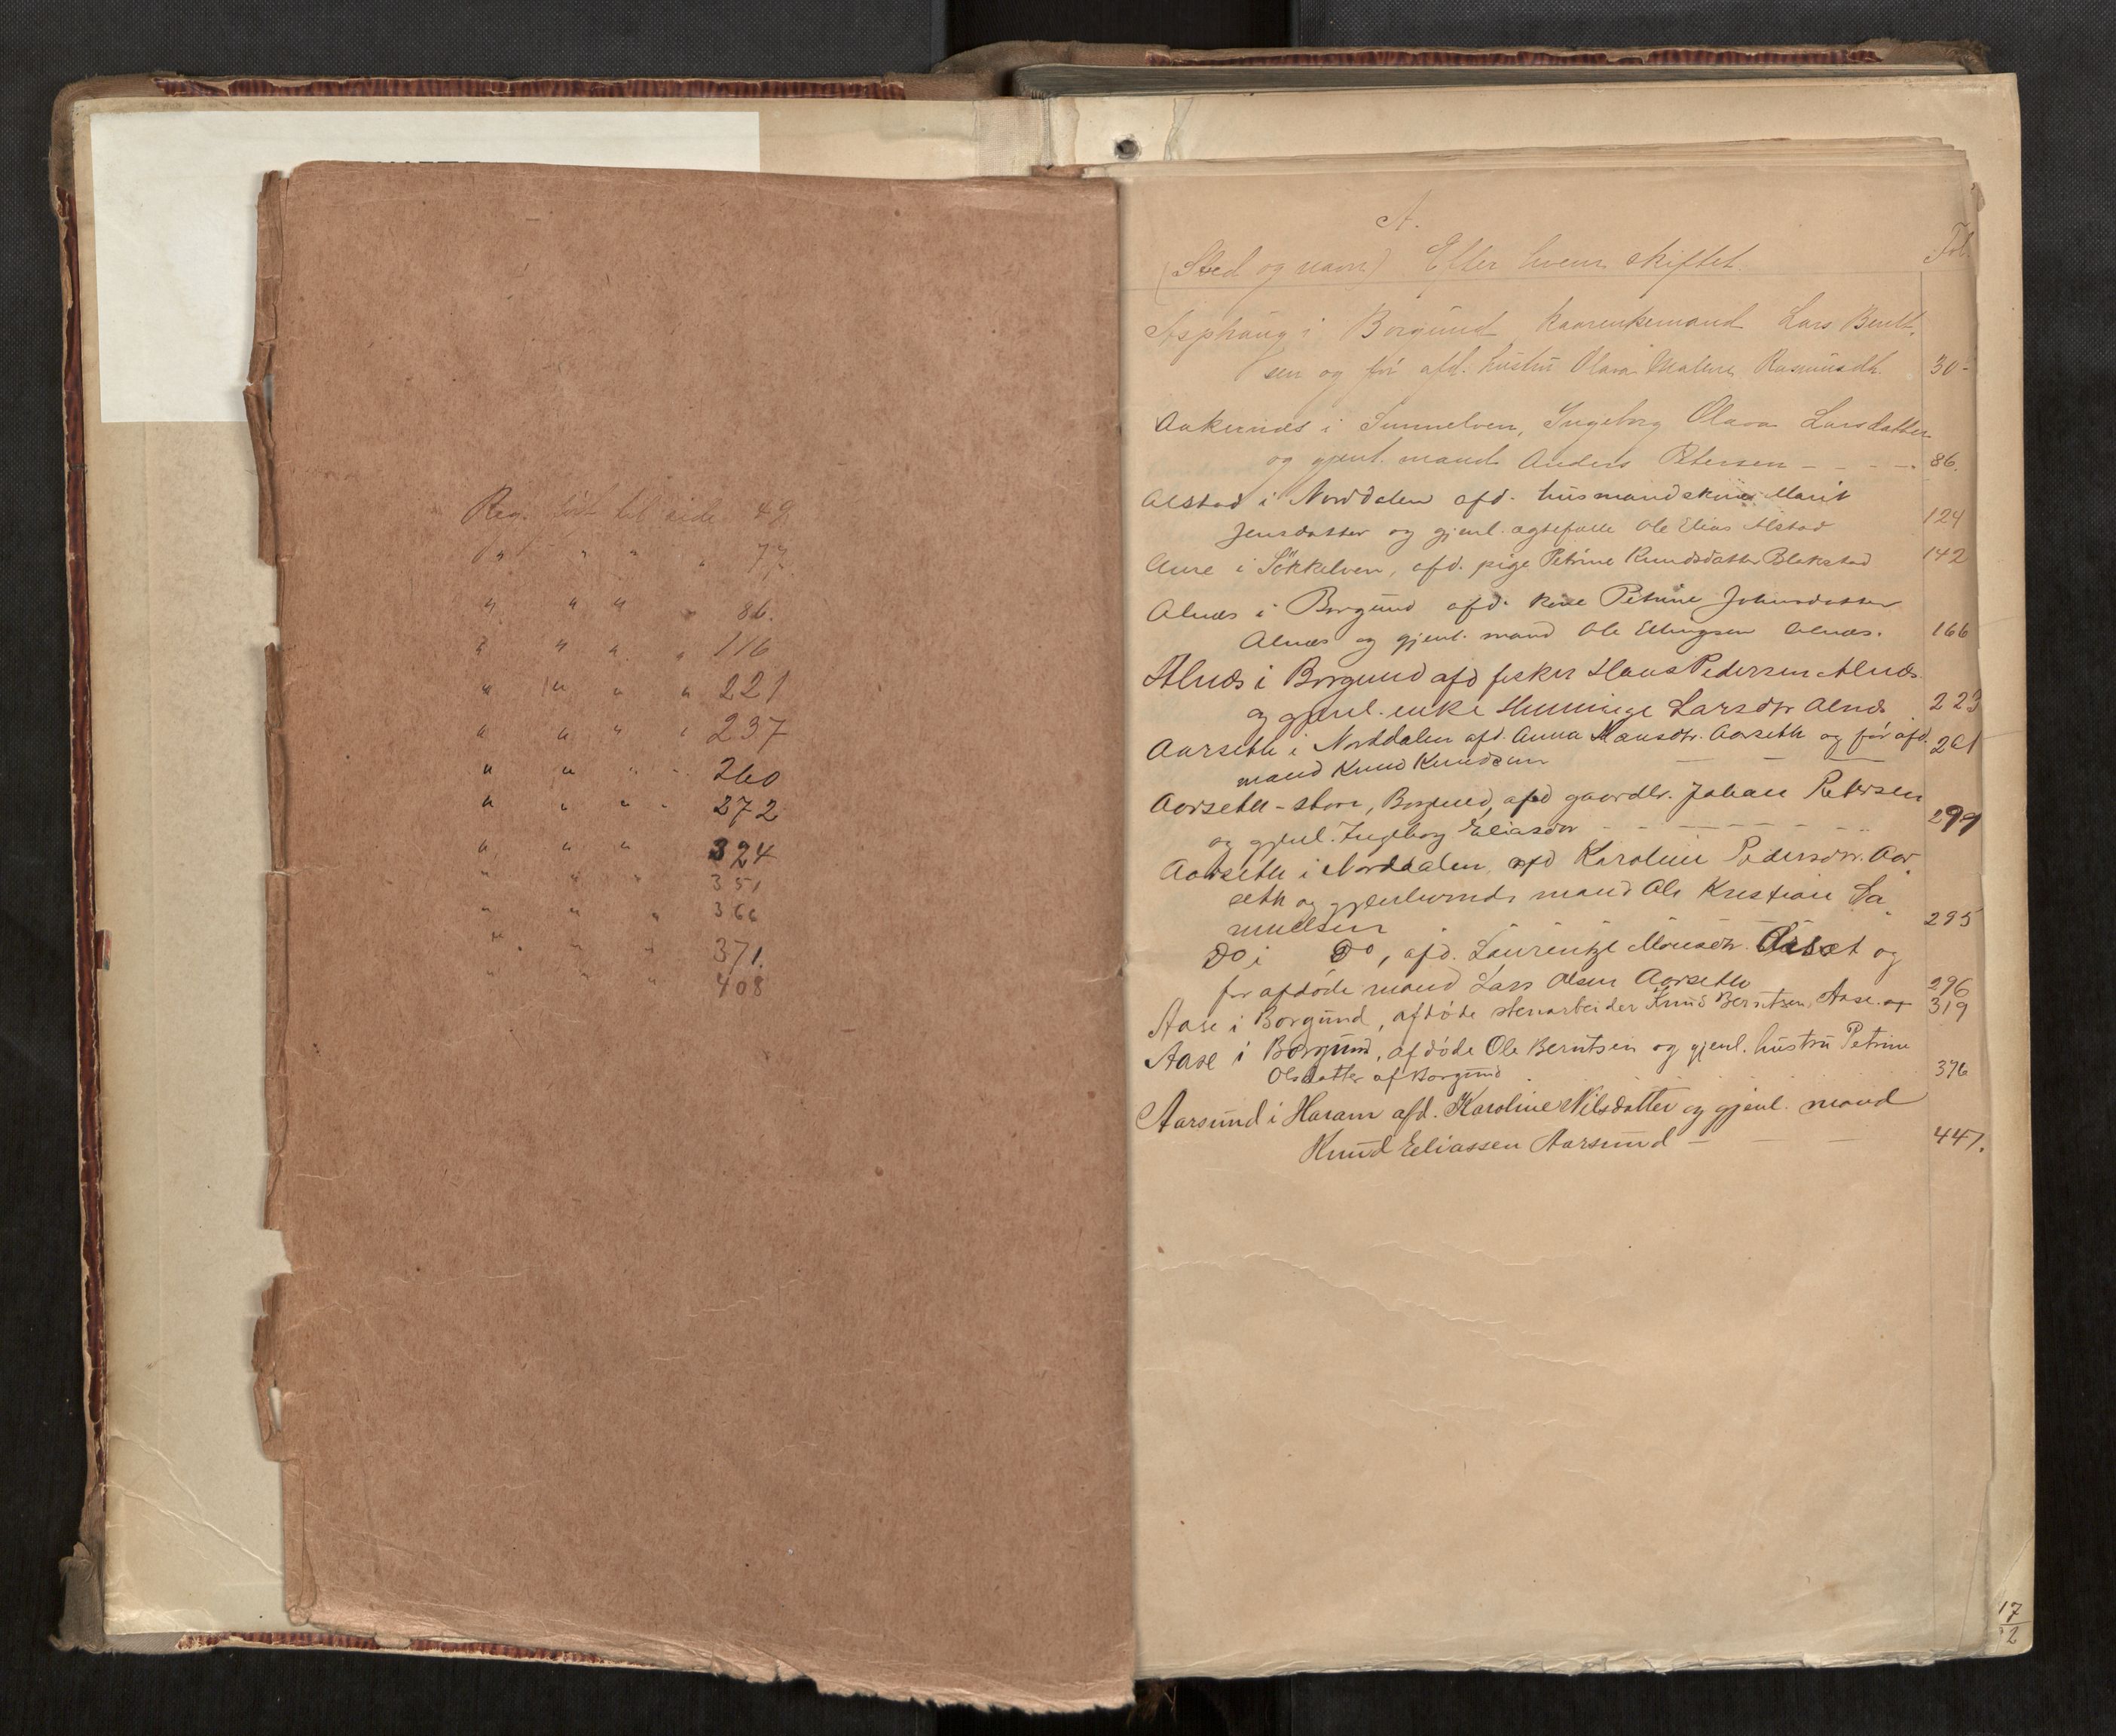 Reg. ført til side 49
" " " " 77
" " " " 86.
" " " " 116
" " " " 221
" " " " 237
" " " " 260
" " " " 272
" " " 324
" " " 351
" " " 366
" " " 371.
" " " 408
A.
(Sted og navn) Efter hvem skiftet Fol
Asphaug i Borgund Kaarenkemand Lars Bernt-
sen og før afd. hustru Olava Malene Rasmusdtr. 30-
Aakernæs i Sunnelven, Ingeborg Olava Larsdatter
og gjenl. mand Anders Petersen - - - - 86.
Alstad i Norddalen afd. husmandskone Marit
Jensdatter og gjenl. ægtefælle Ole Elias Alstad 124
Aure i Søkkelven, afd. pige Petrine Knudsdatter Blakstad 142
Alnæs i Borgund afd. kone Petrine Johnsdatter
Alnæs og gjenl. mand Ole Ellingsen Alnæs. 166
Alnæs i Borgund afd fisker Hans Pedersen Alnæs
og gjenl. enke Hemminge Larsdtr Alnæs 223
Aarseth i Norddalen afd. Anna Hansdtr. Aarseth og før afd.
mand Knud Knudsen — — — 261
Aarseth-store, Borgund, afd gaardbr. Johan Petersen
og gjenl. Ingeborg Eliasdtr - - - - - - 299
Aarseth i Norddalen, afd Karoline Pedersdtr. Aar-
seth og gjenlevende mand Ole Kristian Sa-
muelsen 295
Do i Do, afd. Laurentze Monsdtr. Aarset og
før afdøde mand Lars Olsen Aarseth 296
Aase i Borgund, afdøde stenarbeider Knud Berntsen Aase. og 319
Aase i Borgund, afdøde Ole Berntsen og gjenl. hustru Petrine
Olsdatter af Borgund 376
Aarsund i Haram afd. Karoline Nilsdatter og gjenl. mand
Knud Eeliassen Aarsund — — — 447.
17
12